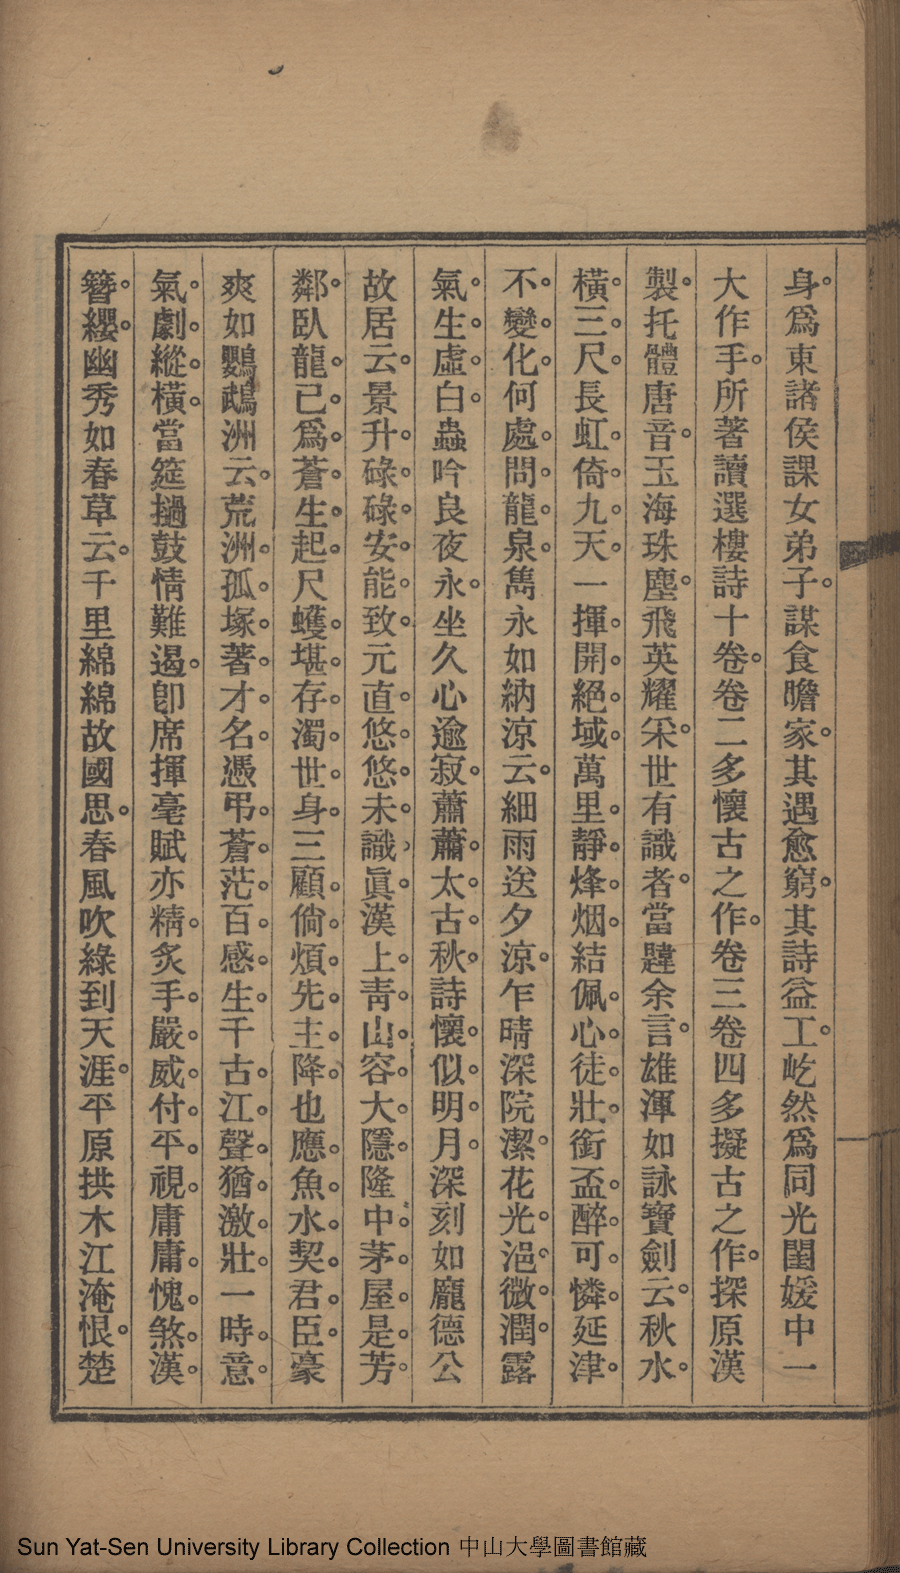 身爲東諸侯課女弟子。謀食瞻家。其遇愈窮。其詩益工。屹然爲同光閨媛中一
大作手。所著讀選樓詩十卷。卷二多懷古之作。卷三卷四多擬古之作。探原漢
製。托體唐音。玉海珠塵。飛英耀采。世有識者。當韙余言。雄渾如詠寶劍云。秋水。
橫。三。尺。長虹。倚。九。天。一揮。開。絕。域。萬里。靜。烽。烟。結佩。心。徒。壯。銜盃。醉。可。憐。延津。
不。變。化。何處。問。龍。泉。雋永如納涼云。細雨送夕涼。乍晴深院潔。花光。浥。微。潤。露
氣。生。虛。白。蟲吟良夜永。坐久心逾寂。蕭蕭。太。古。秋。詩懷。似。明。月。深刻如龐德公
故居云。景升。碌。碌。安。能。致。元直。悠。悠。未。識。眞。漢上。靑。山。容。大。隱。隆中。茅。屋。是。芳。
鄰。臥龍。已。爲。蒼。生。起。尺蠖。堪。存。濁。世。身。三顧。倘。煩。先。主。降。也應。魚。水。契。君。臣。豪
爽如鸚鵡洲云。荒洲。孤。塚。著。才。名。憑弔。蒼。茫。百。感。生。千古。江。聲。猶。激。壯。一時。意。
氣。劇。縱。橫。當筵撾鼓情難遏。卽席揮毫賦亦精。炙手。嚴。威。付。平。視。庸庸。愧。煞。漢。
簪。纓。幽秀如春草云。千里綿綿故國思。春風吹綠到天涯。平原拱木江淹恨。楚
Sun Yat-Sen University Library Collection 中山大學圖書館藏